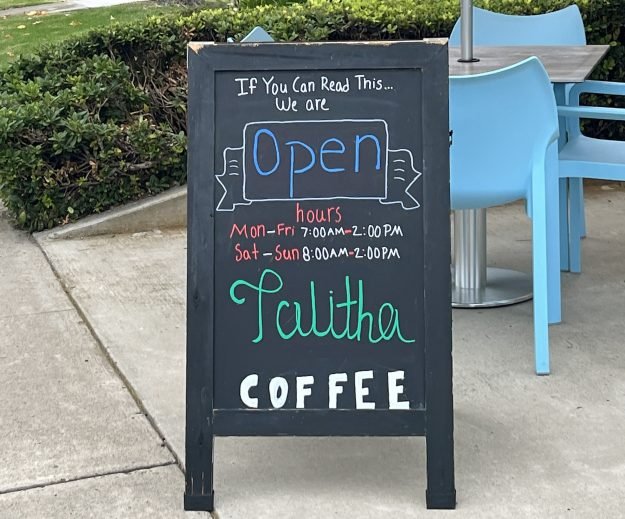 If You Can Read This...
We are
Open
hours
Mon-Fri 7:00AM-2:00PM
Sat-Sun 8:00AM-2:00PM
Talitha
COFFEE